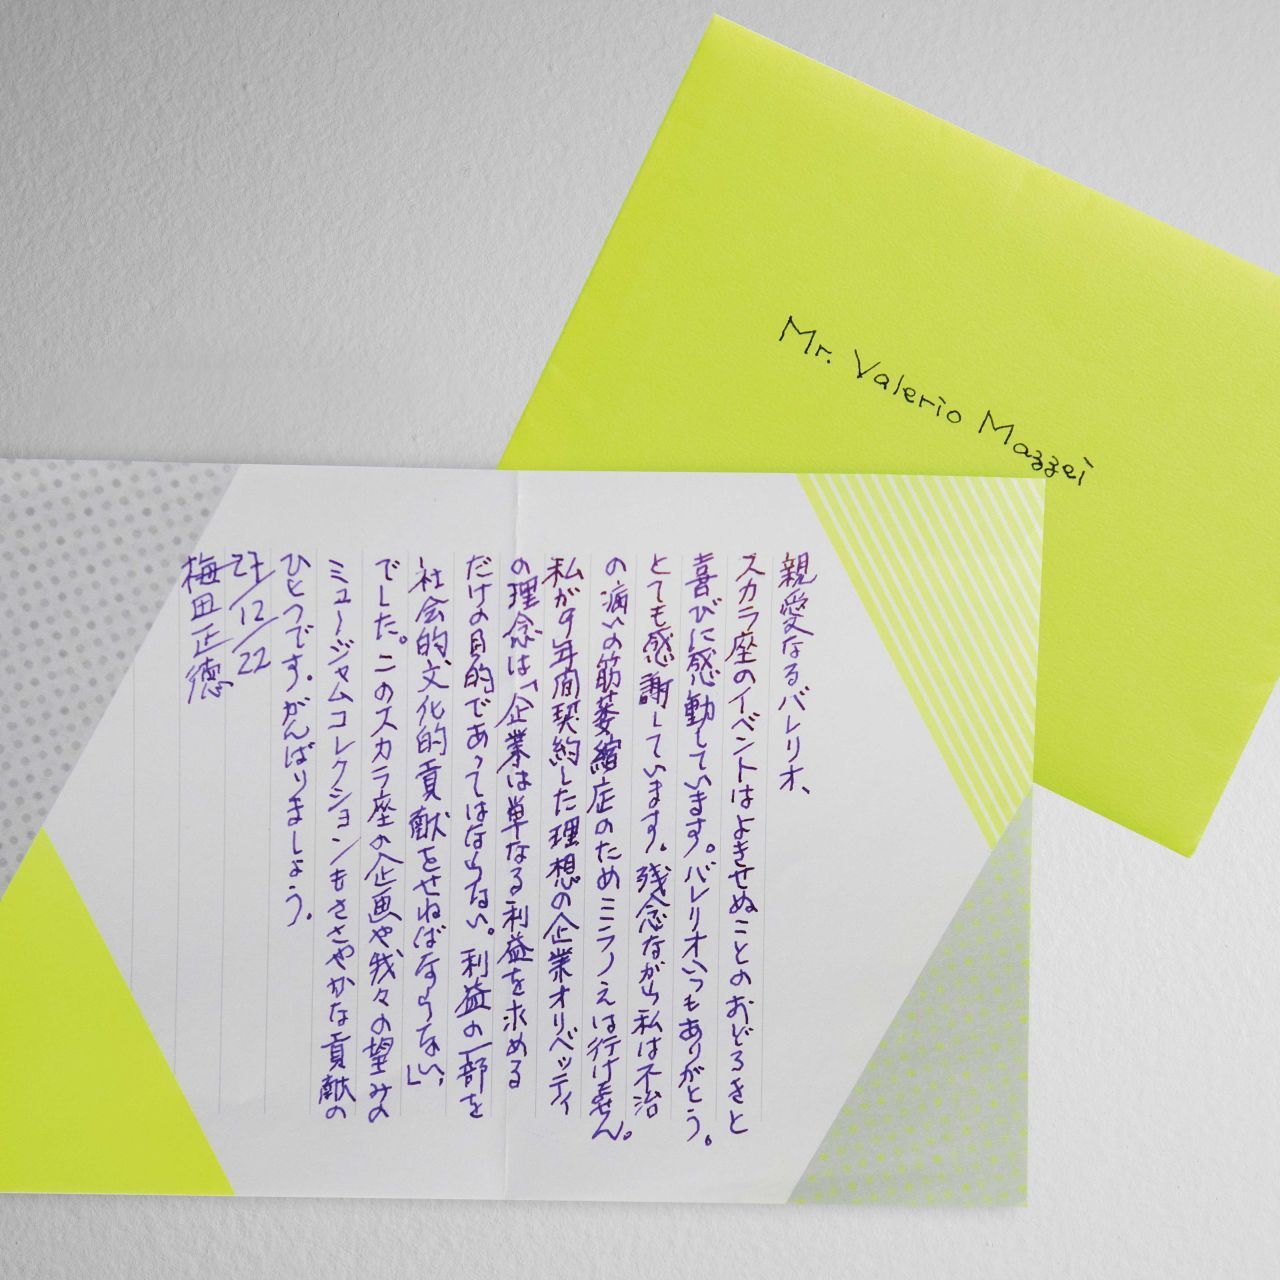 Mr. Valerio Mazzei
親愛なるバレリオ、
スカラ座のイベントはよきせぬことのおどろきと
喜びに感動しています。バレリオいつもありがとう。
とても感謝しています。残念ながら私は不治
の病いの筋萎縮症のためミラノえは行けません。
私が9年間契約した理想の企業オリベッティ
の理念は、「企業は単なる利益を求める
だけの目的であってはならない。利益の一部を
社会的、文化的貢献をせねばならない。」
でした。このスカラ座の企画や我々の望みの
ミュージャムコレクションもささやかな貢献の
ひとつです。がんばりましょう。
27/12/22
梅田正徳